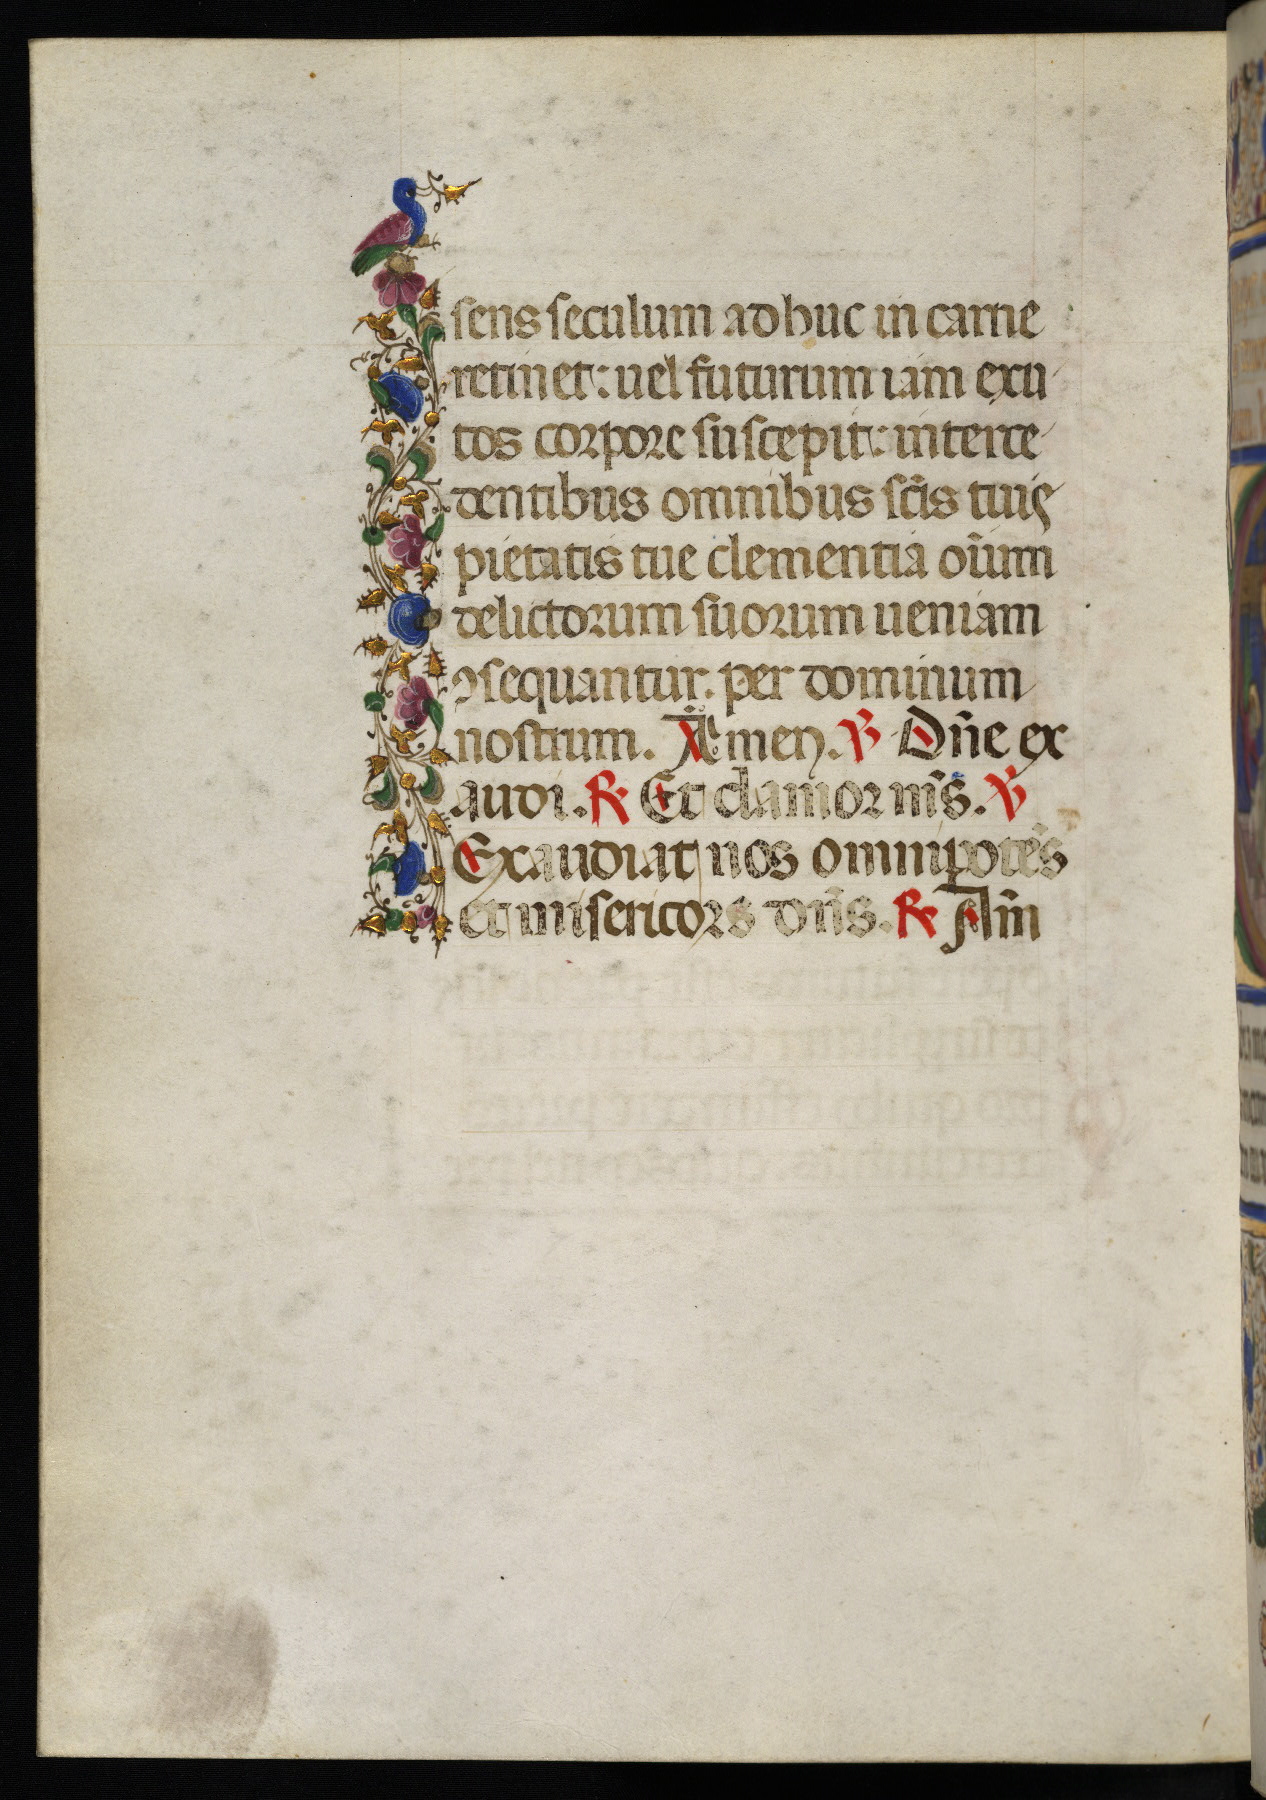 sens seculum adhuc in carne
retinet: uel futurum iam exu
tos corpore suscepit: interce
dentibus omnibus scīs tuis
pietatis tue clementia oīum
delictorum suorum ueniam
ꝯsequantur. per dominum
nostrum. Amen. ℣ Dn̄e ex
audi. ℟ Et clamor m̄s. ℣
Exaudiat nos omnipotēs
et misericors dn̄s. ℟ Am̄